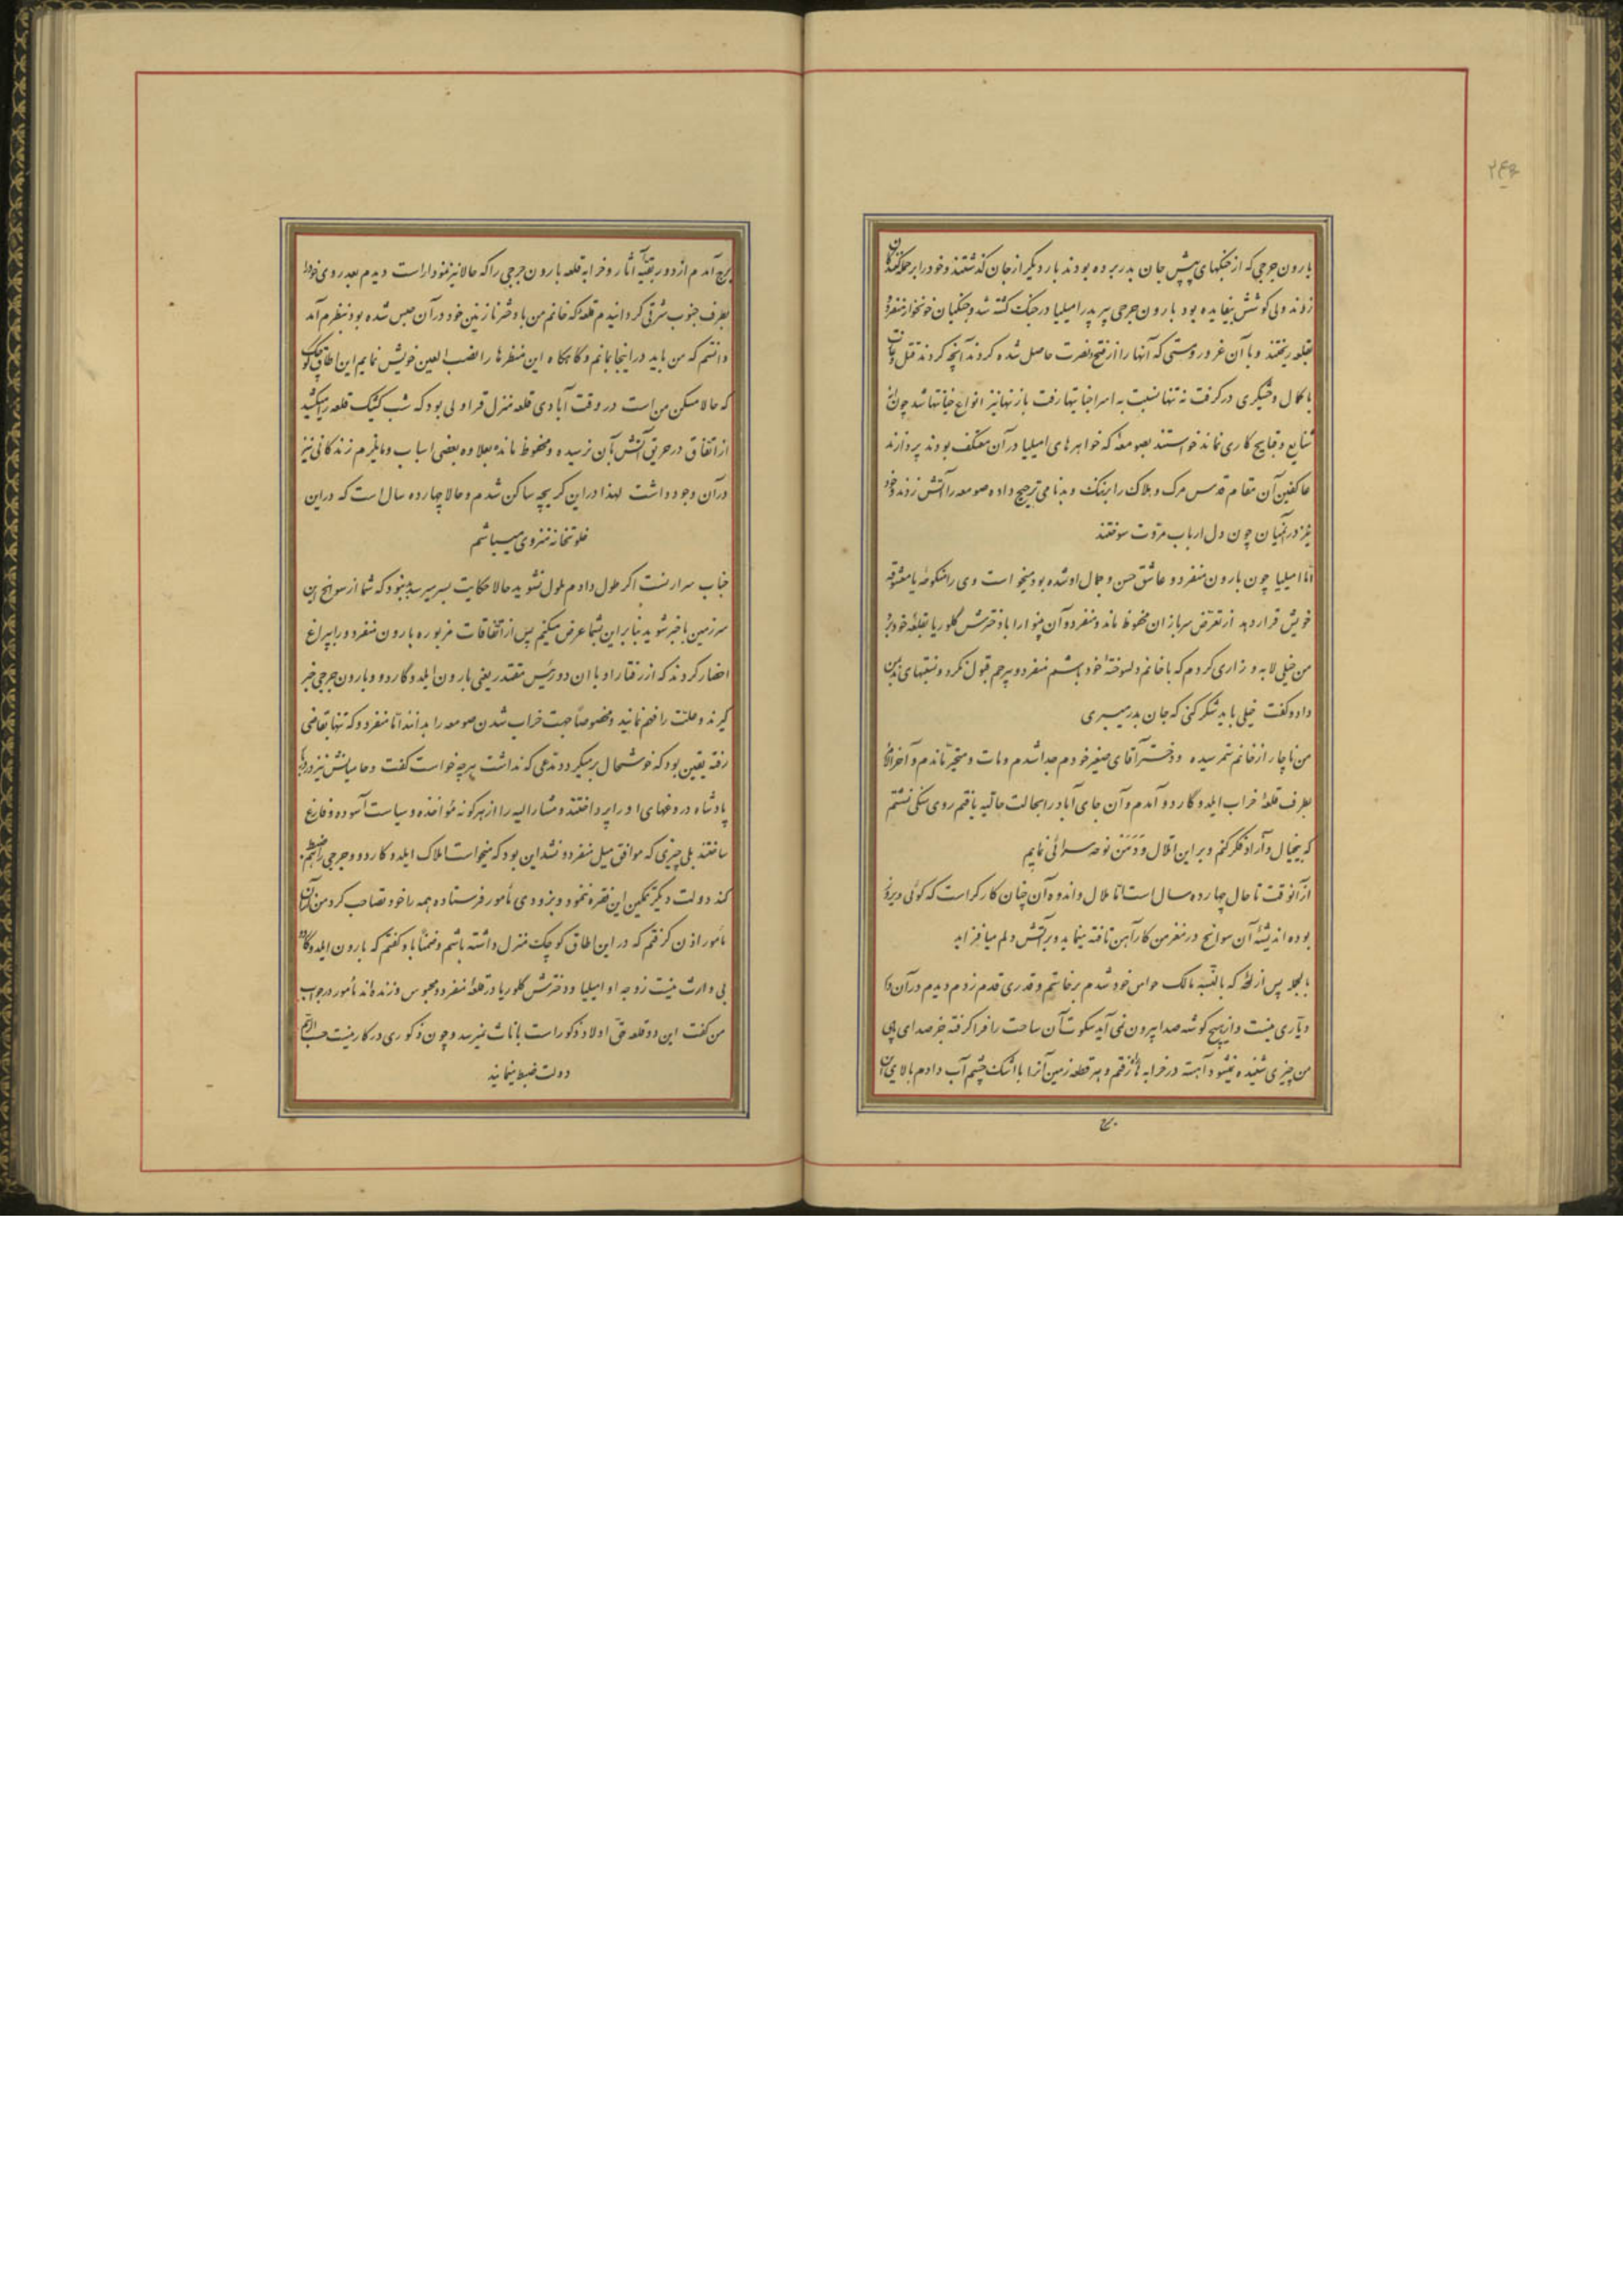 بارون جرجی که از جنگهای پیش جان بدر برده بودند بار دیگر از جان گذشتند و خود را بر حمله‌کنندگان
زدند ولی کوشش بیفایده بود بارون جرجی پیر پدر امیلیا در جنگ کشته شد و جنگیان خونخوار منفردو
بقلعه ریختند و با آن غرور و مستی که آنها را از فتح و نصرت حاصل شده کردند آنچه کردند قتل و غارت
با کمال وحشیگری در گرفت نه تنها نسبت به اسرا خیانتها رفت با زنها نیز انواع خیانتها شد چون از
شنایع و قبایح کاری نماند خواستند بصومعه که خواهرهای امیلیا در آن معتکف بودند پردازند
عاکفین آن مقام قدس مرگ و هلاک را بر ننگ و بدنامی ترجیح داده صومعه را آتش زدند و خود
نیز در آنمیان چون دل ارباب مروت سوختند
اما امیلیا چون بارون منفردو عاشق حسن و جمال او شده بود میخواست وی را منکوحه یا معشوقه
خویش قرار دهد از تعرض سربازان محفوظ ماند و منفردو آن بینوا را با دخترش گلوریا بقلعه خود برد
من خیلی لابه و زاری کردم که با خانم دلسوخته خود باشم منفردو بیرحم قبول نکرد و نسبتهای بد بمن
داد و گفت خیلی باید شکر کنی که جان بدر میبری
من ناچار از خانم ستم رسیده و دختر آقای صغیر خودم جدا شدم و مات و متحیر ماندم و آخرالامر
بطرف قلعه خراب ایلدوگاردو آمدم و آن جای آباد را بحالت حالیه یافتم روی سنگی نشستم
که بیخیال و آزاد فکر کنم و بر این اطلال و دمن نوحه سرائی نمایم
از آنوقت تا حال چهارده سال است اما ملال و اندوه آن چنان کارگر است که گوئی دیروز
بوده اندیشه آن سوانح در مغز من کار آهن تافته مینماید و بر آتش دلم میافزاید
بالجمله پس از آنکه بالنسبه مالک حواس خود شدم برخاستم و قدری قدم زدم دیدم در آن دار
دیاری نیست و از هیچ گوشه صدا بیرون نمی‌آید سکوت آن ساحت را فرا گرفته جز صدای پای
من چیزی شنیده نمیشود آهسته در خرابه‌ها رفتم و هر قطعه زمین آنرا با اشک چشم آب دادم بالای آن
برج
برج آمدم از دور بقیه آثار و خرابه قلعه بارون جرجی را که حالا نیز نمودار است دیدم بعد روی خود را
بطرف جنوب شرقی گردانیدم قلعه که خانم من با دختر نازنین خود در آن حبس شده بود بنظرم آمد
دانستم که من باید در اینجا بمانم و گاهگاه این منظرها را نصب العین خویش نمایم این اطاق کوچک
که حالا مسکن من است در وقت آبادی قلعه منزل قراولی بود که شب کشیک قلعه را میکشید
از اتفاق در حریق آتش بآن نرسیده و محفوظ مانده بعلاوه بعضی اسباب و مایلزم زندگانی نیز
در آن وجود داشت لهذا در این کریچه ساکن شدم و حالا چهارده سال است که در این
خلوتخانه منزوی میباشم
جناب سرارنست اگر طول دادم ملول نشوید حالا حکایت بسر میرسد بد نبود که شما از سوانح این
سرزمین باخبر شوید بنابراین بشما عرض میکنم پس از اتفاقات مزبوره بارون منفردو را بپراغ
احضار کردند که از رفتار او با آن دو رئیس مقتدر یعنی بارون ایلدوگاردو و بارون جرجی خبر
گیرند و علت را فهم نمایند و مخصوصا جهت خراب شدن صومعه را بدانند اما منفردو که تنها بقاضی
رفته یقین بود که خوشحال برمیگردد مدعی که نداشت هرچه خواست گفت و حامیانش نیز در نزد
پادشاه دروغهای او را پرداختند و مشارالیه را از هرگونه مؤاخذه و سیاست آسوده و فارغ
ساختند بلی چیزی که موافق میل منفردو نشد این بود که میخواست املاک ایلدوگاردو و جرجی را ضبط
کند دولت دیگر تمکین این فقره ننمود و بزودی مأمور فرستاده همه را خود تصاحب کرد من از آن
مأمور اذن گرفتم که در این اطاق کوچک منزل داشته باشم و ضمناً باو گفتم که بارون ایلدوگاردو
بی وارث نیست زوجه او امیلیا و دخترش گلوریا در قلعه منفردو محبوس و زنده‌اند مأمور در جواب
من گفت این دو قلعه حق اولاد ذکور است باناث نمیرسد و چون ذکوری در کار نیست حسب الرسم
دولت ضبط مینماید